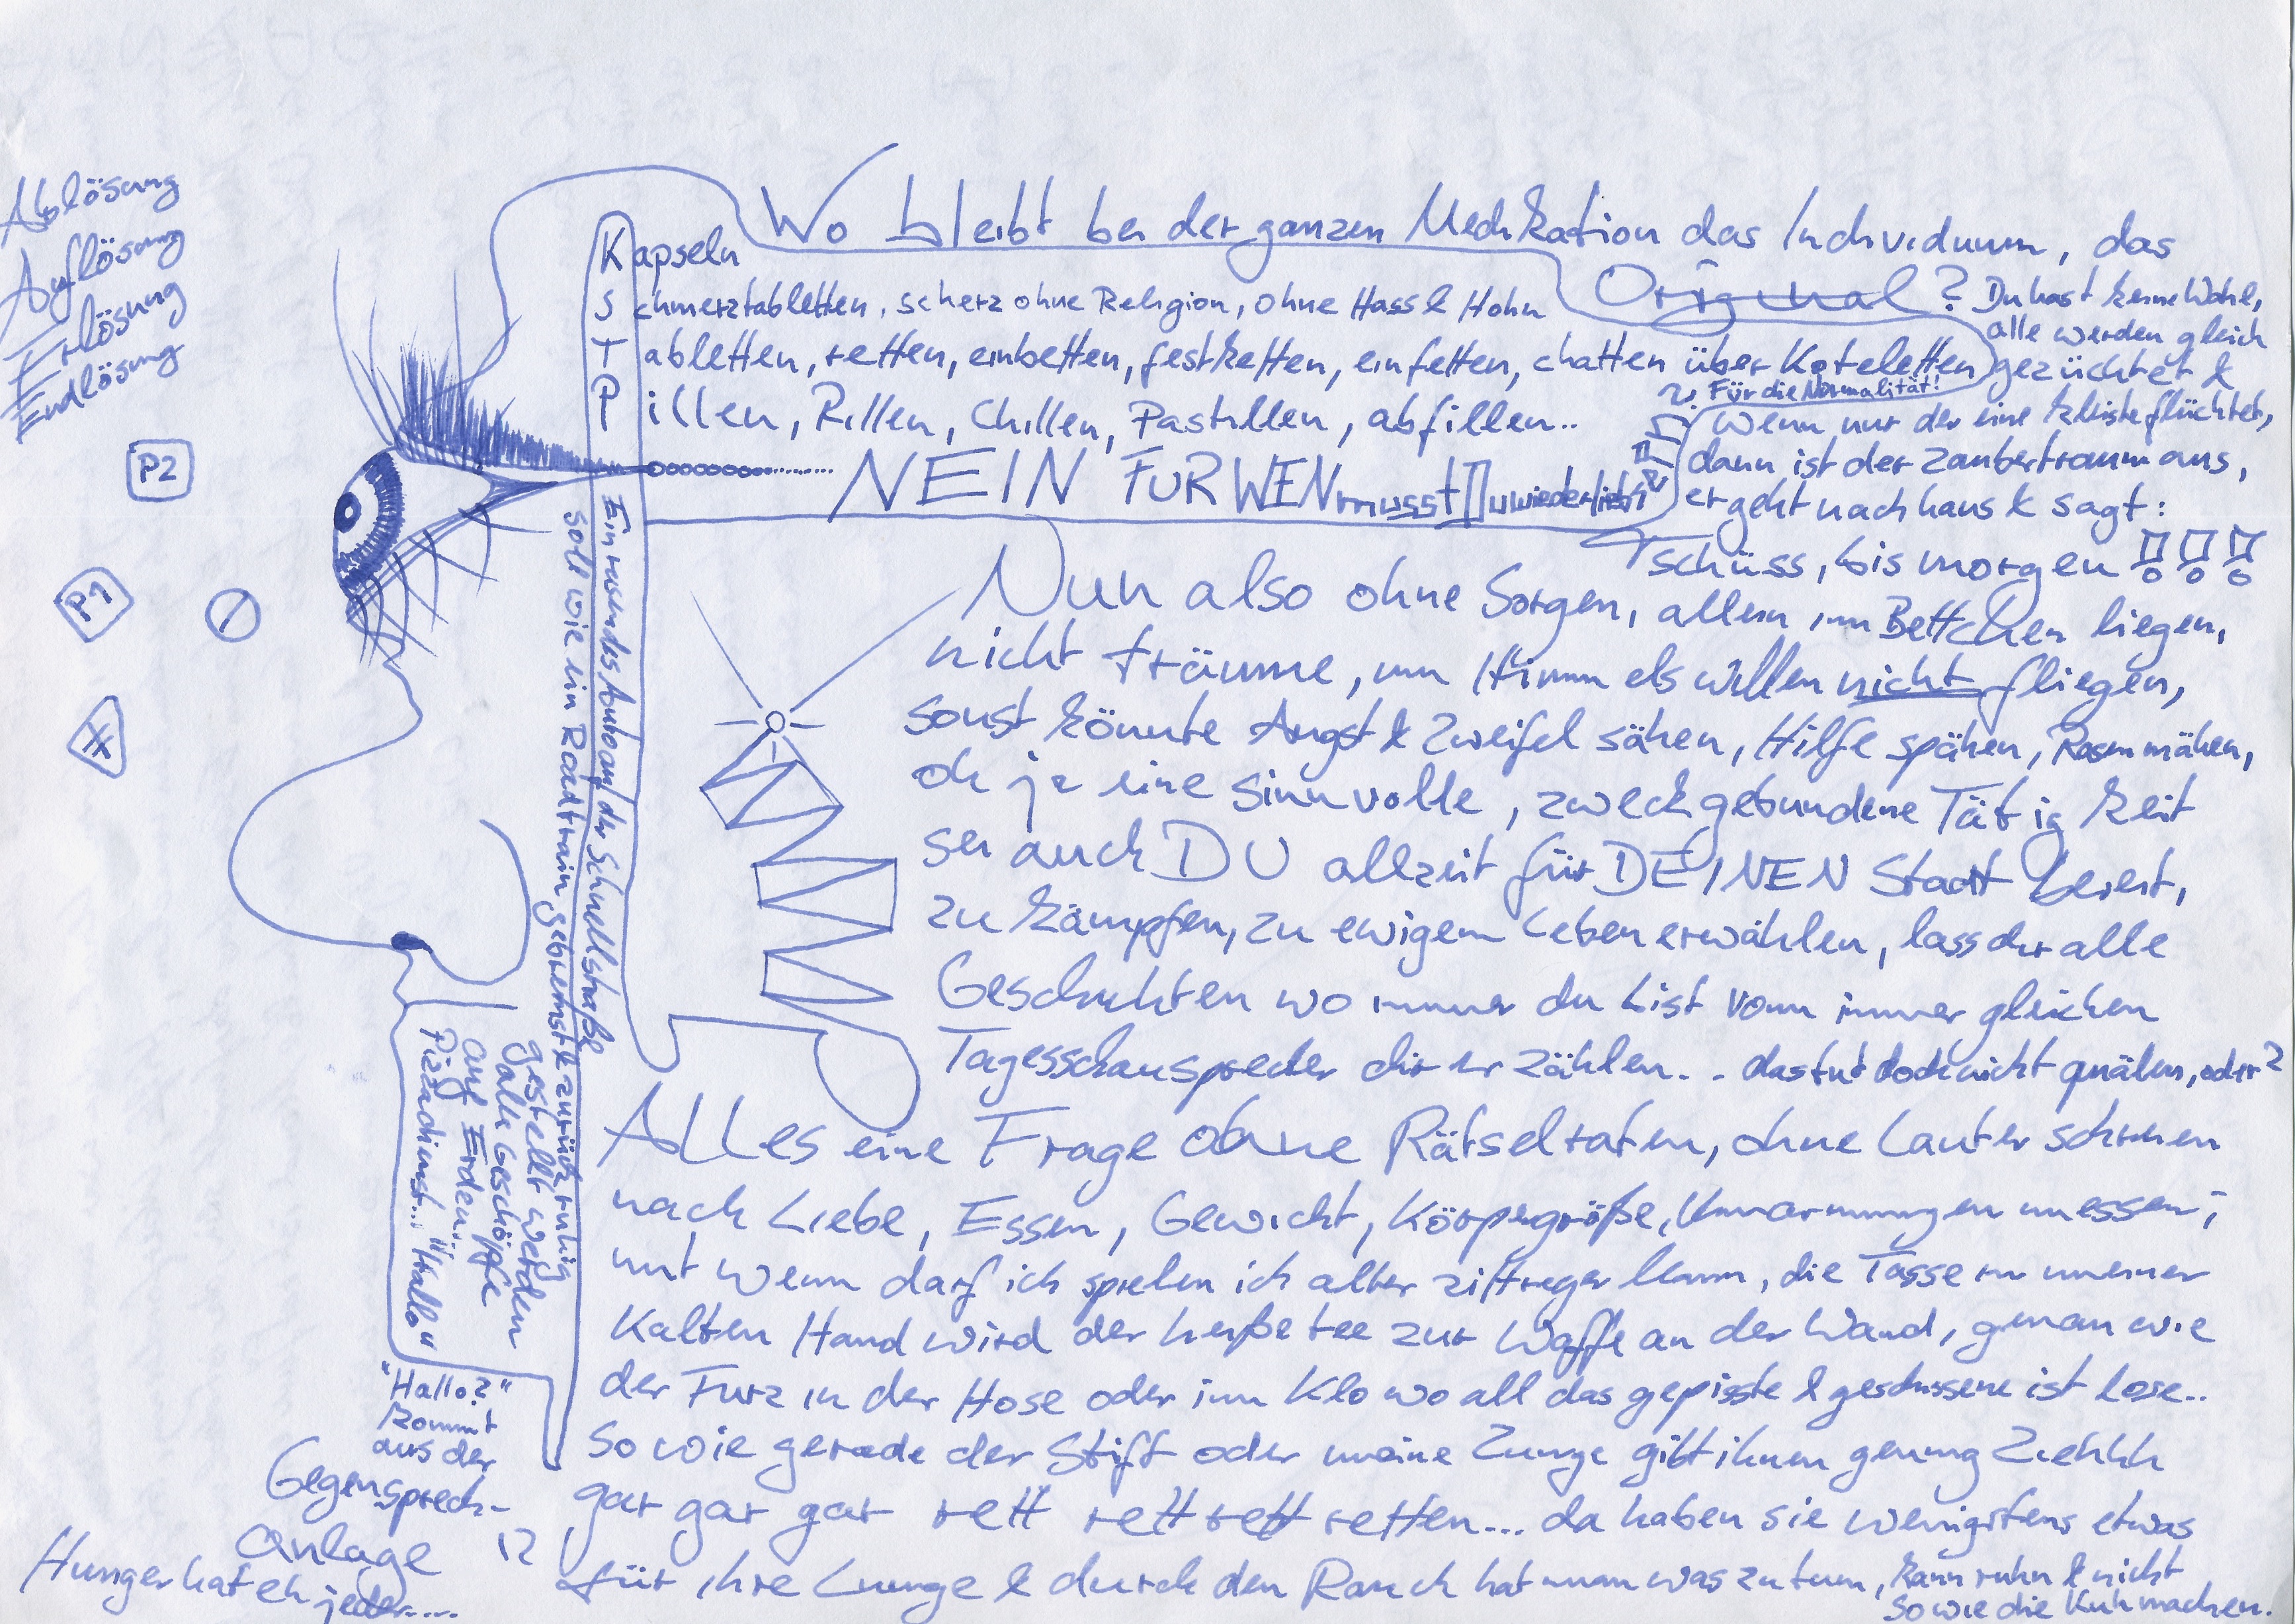 Ablösung
Auflösung
Erlösung
Endlösung
P2
P1
Wo bleibt bei der ganzen Medikation das Individuum, das
Original? Du hast keine Wahl,
alle werden gleich
gezüchtet &
Kapseln
Schmerztabletten, scherz ohne Religion, ohne Hass & Hohn
Tabletten, retten, einbetten, festketten, einfetten, chatten über Koteletten
Für die Normalität!
Pillen, Rillen, Chillen, Pastillen, abfillen..
NEIN FÜR WEN musst Du wieder lieb
Wenn nur der eine kleiste flüchtet,
dann ist der Zaubertraum aus,
er geht nach haus & sagt:
Tschüss, bis morgen !!!
Nun also ohne Sorgen, allein im Bettchen liegen,
nicht träume, um Himmels willen nicht fliegen,
sonst könnte Angst & Zweifel sähen, Hilfe spähen, Rasen mähen,
oh je eine sinnvolle, zweckgebundene Tätigkeit
sei auch DU allzeit für DEINEN Staat bereit,
zu kämpfen, zu ewigem Leben erwählen, lass dir alle
Geschichten wo immer du bist vom immer gleichen
Tagesschausprecher dir erzählen.. das tut doch nicht quälen, oder?
Alles eine Frage ohne Rätselraten, ohne Lauter schreien
nach Liebe, Essen, Gewicht, Körpergröße, Umarmungen messen;
mit wem darf ich spielen ich alter, die Tasse in meiner
Kalten Hand wird der heiße tee zur Waffe an der Wand, genau wie
der Furz in der Hose oder im Klo wo all das gepisste & geschissene ist lose..
So wie gerade der Stift oder meine Zunge gibt ihnen genug Ziehhh
gar gar gar rett rett rett retten... da haben sie wenigstens etwas
für ihre Lunge & durch den Rauch hat man was zu tun, kann ruhn & nicht
so wie die Kuh machen.
Ein rasendes Auto auf der Schnellstraße
soll wie ein Roadtrain gebremst & zurück ruhig
gestellt werden
alle Geschöpfe
auf Erden...
Pizzadienst... "Hallo"
"Hallo?"
kommt
aus der
Gegensprech-
anlage
Hunger hat eh jeder....